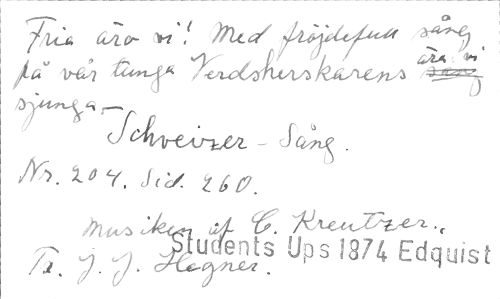 Fria äro vi! Med fröjdefull sång
på vår tunga Verdsherskarens ära vi
sjunga.–
Schveizer – Sång.
Nr. 204. Sid. 260.
Musiken af C. Kreutzer.,
Students Ups 1874 Edquist
Tr. J. J. Hegner.